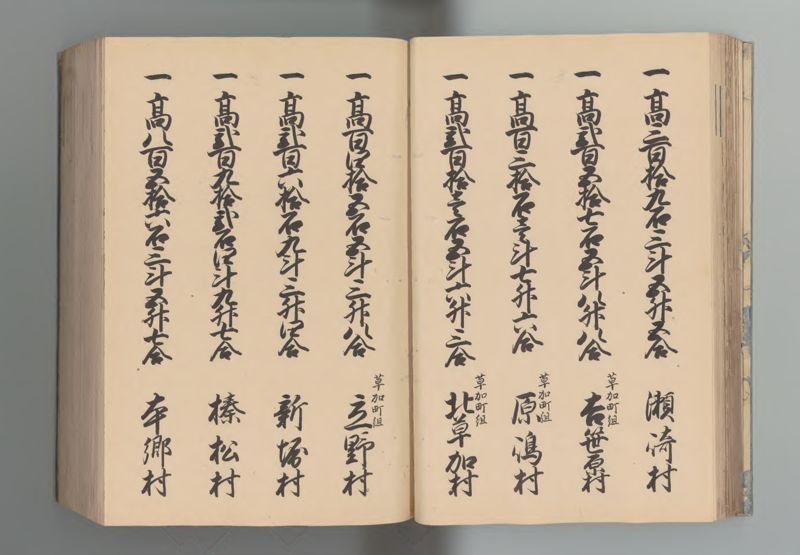 一 高三百拾九石三斗五升五合 瀬崎村
一 高弐百五拾七石五斗八升八合 草加町組 吉笹原村
一 高百三拾石壱斗七升六合 草加町組 原嶋村
一 高弐百拾壱石五斗六升三合 草加町組 北草加村
一 高百四拾五石五斗三升八合 草加町組 立野村
一 高弐百六拾石九斗三升四合 新堀村
一 高弐百九拾弐石四斗九升七合 榛松村
一 高八百五拾六石三斗五升七合 本郷村